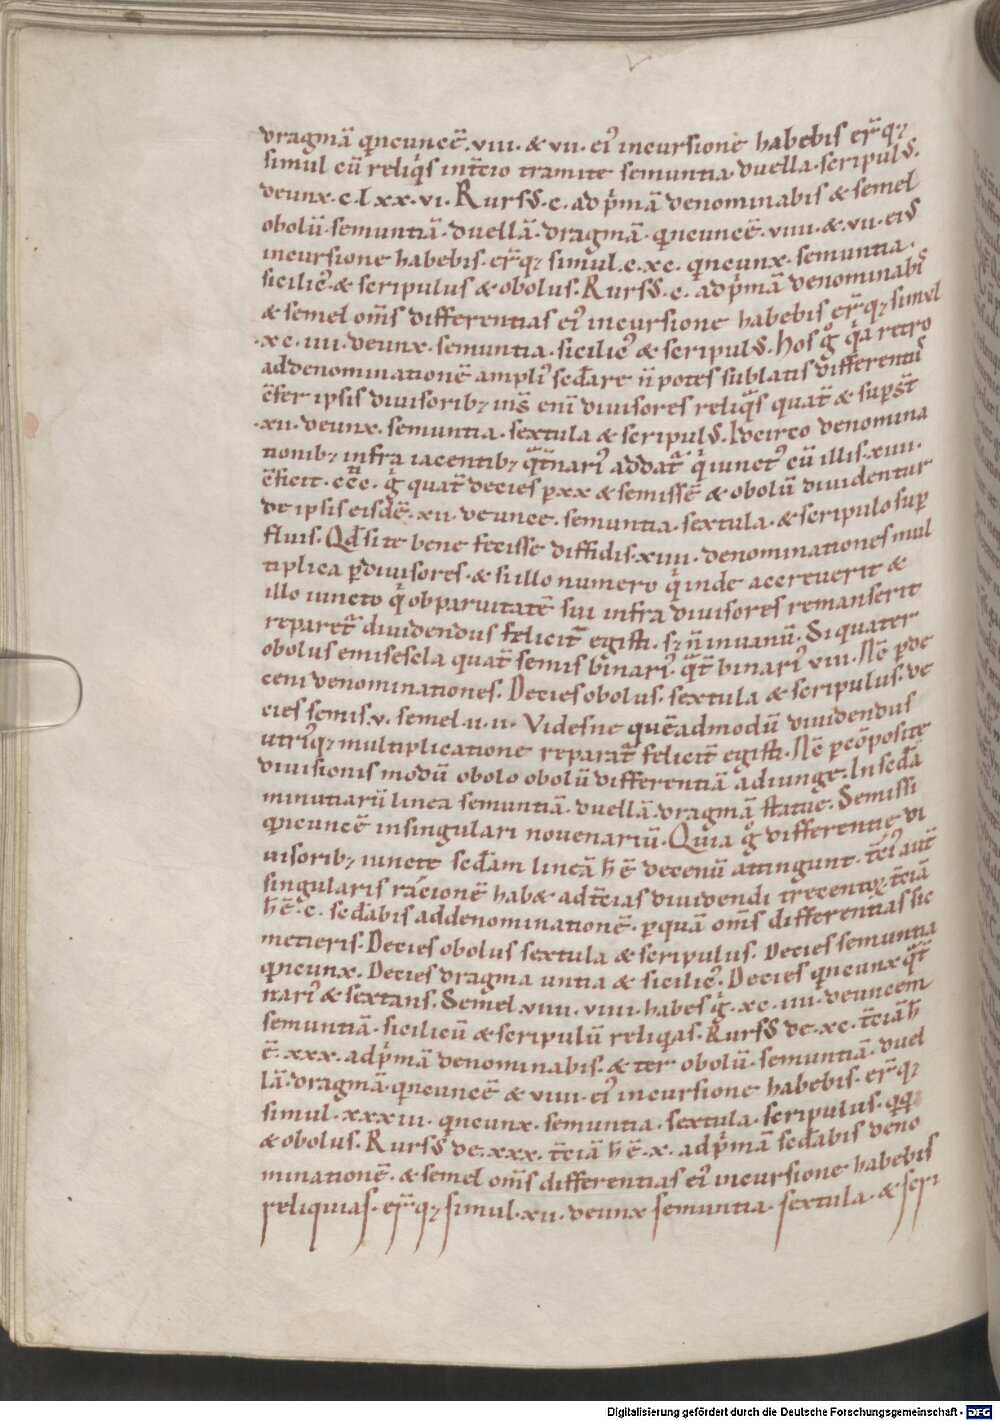 dragmā qncuncē. viii. & vii. eiꝰ incursione habebis erq̄ꝫ
simul cū reliq̇s int̄eio tramite semuntia. duella. scripulꝰ.
deunx. c. l xx. vi. Rursꝰ. c. ad pͥmā denominabis & semel
obolū. semuntiā. duellā. dragmā. qncuncē. viiii. &. vii. eiꝰ
incursione habebis. erq̄ꝫ simul. c. xc. qncunx. semuntia.
siciliēꝰ & scripulus & obolus. Rursꝰ. c. ad pͥmā denominabis
& semel om̄s differentias eiꝰ incursione habebis erq̄ꝫ simul
xc. iiii. deunx. semuntia. siciliēꝰ & scripulꝰ. hos gͦ qͥa retro
addenominationē ampliꝰ sedare n̄ potes sublatis differentiis
c̄fer ipsis divisoribꝫ iii͛ eni divisores reliq̇s quat̄ & sup̄st̄
xii. deunx. semuntia. sextula & scripulꝰ. Idcirco denomina
tionibꝫ infra iacentibꝫ qͣt̄nariꝰ addat̄ qͥ iunctꝰ cū illis. xiiii.
c̄ficit. cc̄c. gͦ quat̄ decies p xx & semissē & obolū dividentur
de ipsis eisdē. xii. deunce. semuntia. sextula. & scripulo sup̄
fluis. Qd̄ si te bene fecisse diffidis. xiiii. denominationes mul
tiplica p̄ divisores. & si illo numero qͥ inde acereverit &
illo iuncto qͥ ob parvitatē sui infra divisores remanserit
reparet̄ dividendus felicit̄ egisti. sꝫ n̄ in vanū. Si quater
obolus emisescla quat̄ semis binariꝰ. qͣt̄ binariꝰ viii. Nē p̄ de
ceni denominationes. Decies obolus. sextula & scripulus. de
cies semis. v. semel. ii. ii. Videsne quēadmodū dividendus
utriꝰqꝫ multiplicatione reparat̄ felicit̄ egisti. Nē p̄ cōposite
divisionis modū obolo obolū differentiā adiunge. In secd̄a
minutiarū linea semuntiā. duellā. dragmā statue. Semissi
qncuncē in singulari novenariū. Quia gͦ differentie di
visoribꝫ iuncte secd̄am lineā h̄ ē decenū attingunt. t̄eiꝰ aut̄
singularis racionē hab& ad t̄eias dividendi trecentoꝝ t̄eiā
h̄ ē. c. secd̄abis addenominationē. p quā om̄s differentias sic
metieris. Decies obolus sextula & scripulus. Decies semuntia
qncunx. Decies dragma untia & siciliēꝰ. Decies qncunx qͣt̄
nariꝰ & sextans. Semel. viiii. viiii. habes gͦ. xc. iiii. deuncem
semuntiā. siciliēū & scripulū reliqas. Rursꝰ de. xc. t̄eiā h̄
ē. xxx. ad pͥmā denominabis. & ter obolū. semuntiā. duel
lā. dragmā. qncuncē & viiii. eiꝰ incursione habebis. erq̄ꝫ
simul. xxxiii. qncunx. semuntia. sextula. scripulus. qq̄
& obolus. Rursꝰ de. xxx. t̄eiā h̄ ē. x. ad pͥmā secd̄abis deno
minationē. & semel om̄s differentias eiꝰ incursione habebis
reliquias. erq̄ꝫ simul. xii. deunx semuntia. sextula. & scri
Digitalisierung gefördert durch die Deutsche Forschungsgemeinschaft - DFG